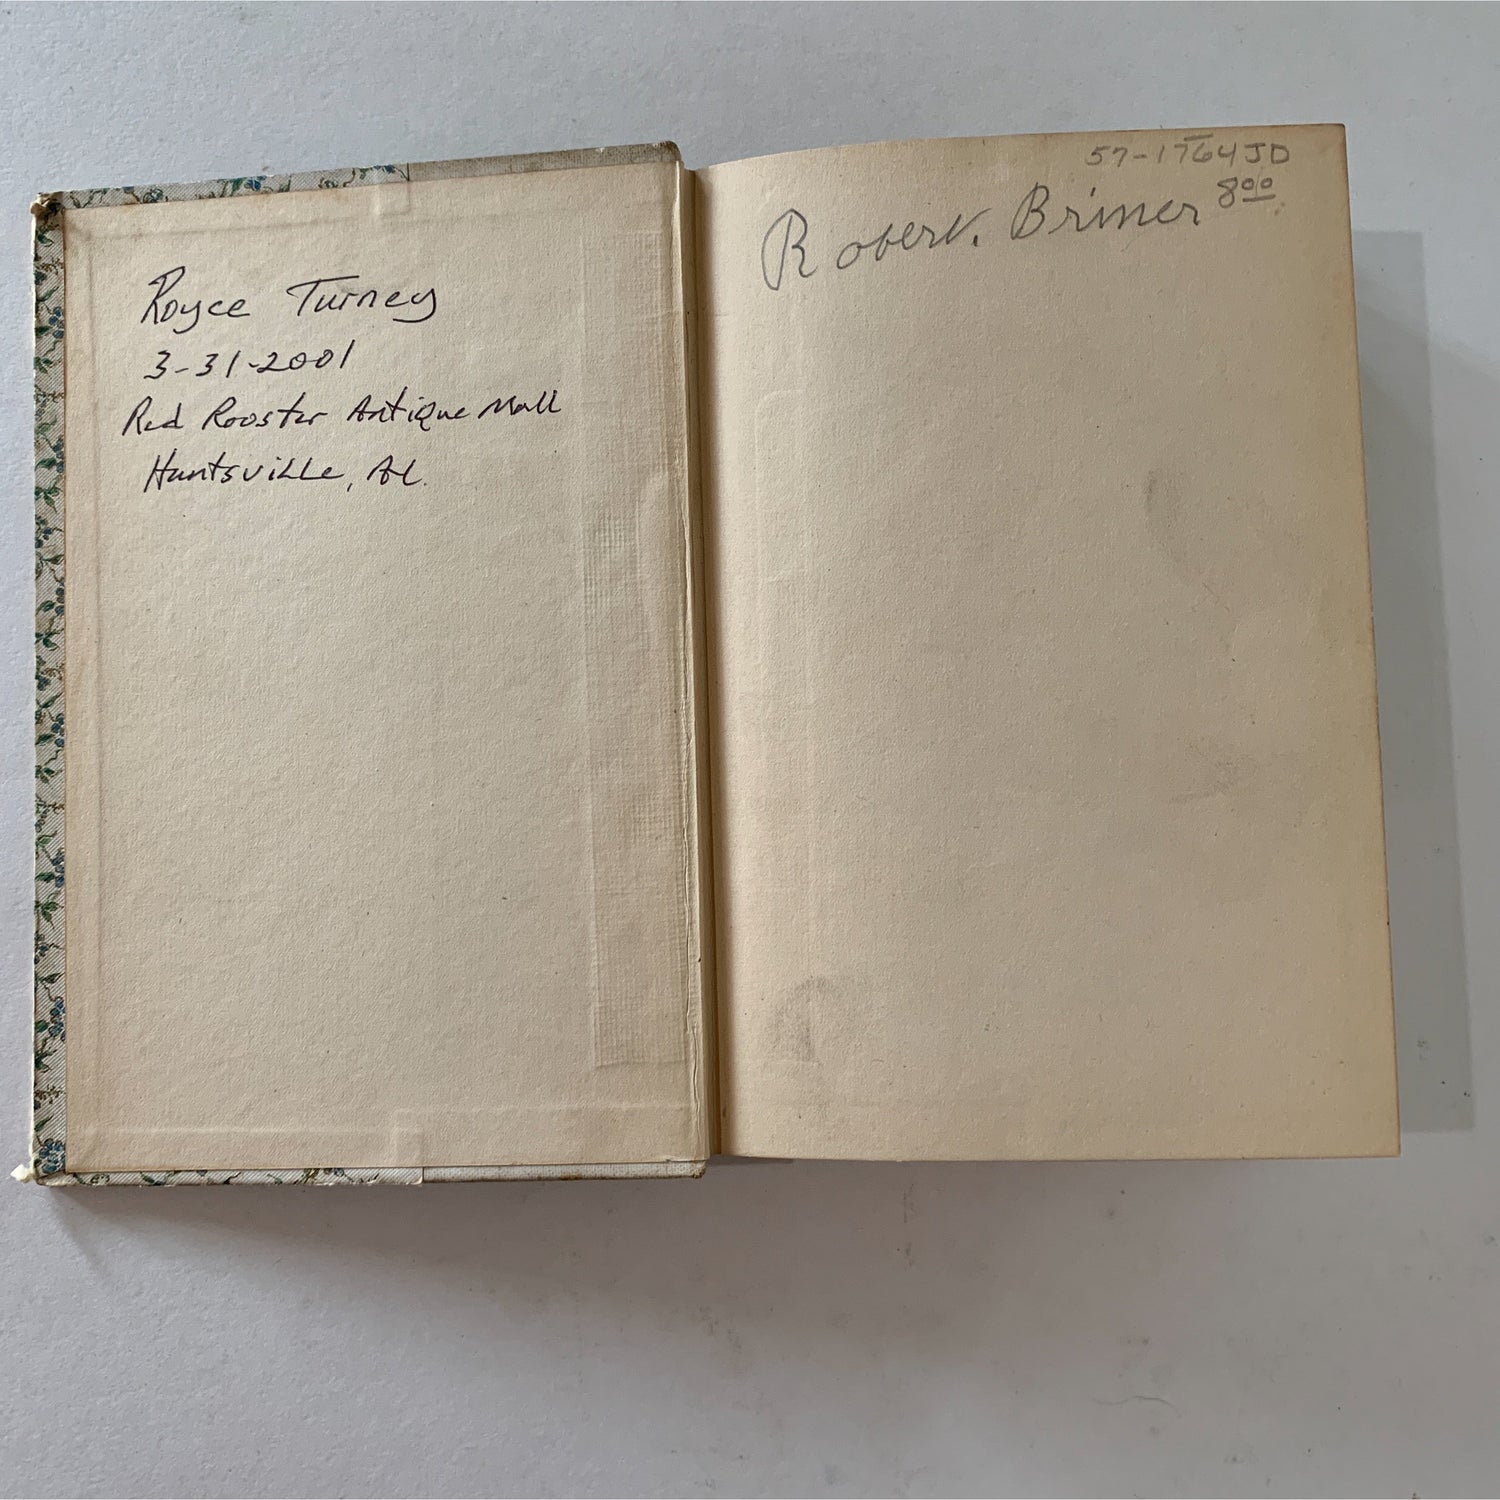 Royce Turney
3-31-2001
Red Rooster Antique Mall
Huntsville, AL.
57-1764JD
800
Robert. Briner